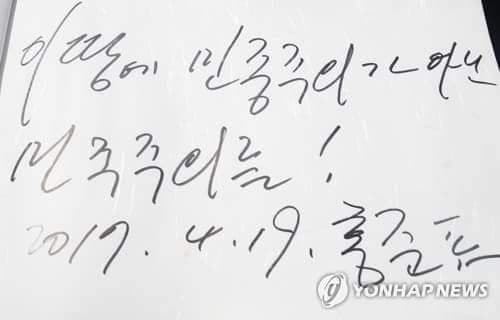 이 땅에 민중주의가 아닌
민주주의를!
2017. 4. 19. 홍준표
YONHAP NEWS